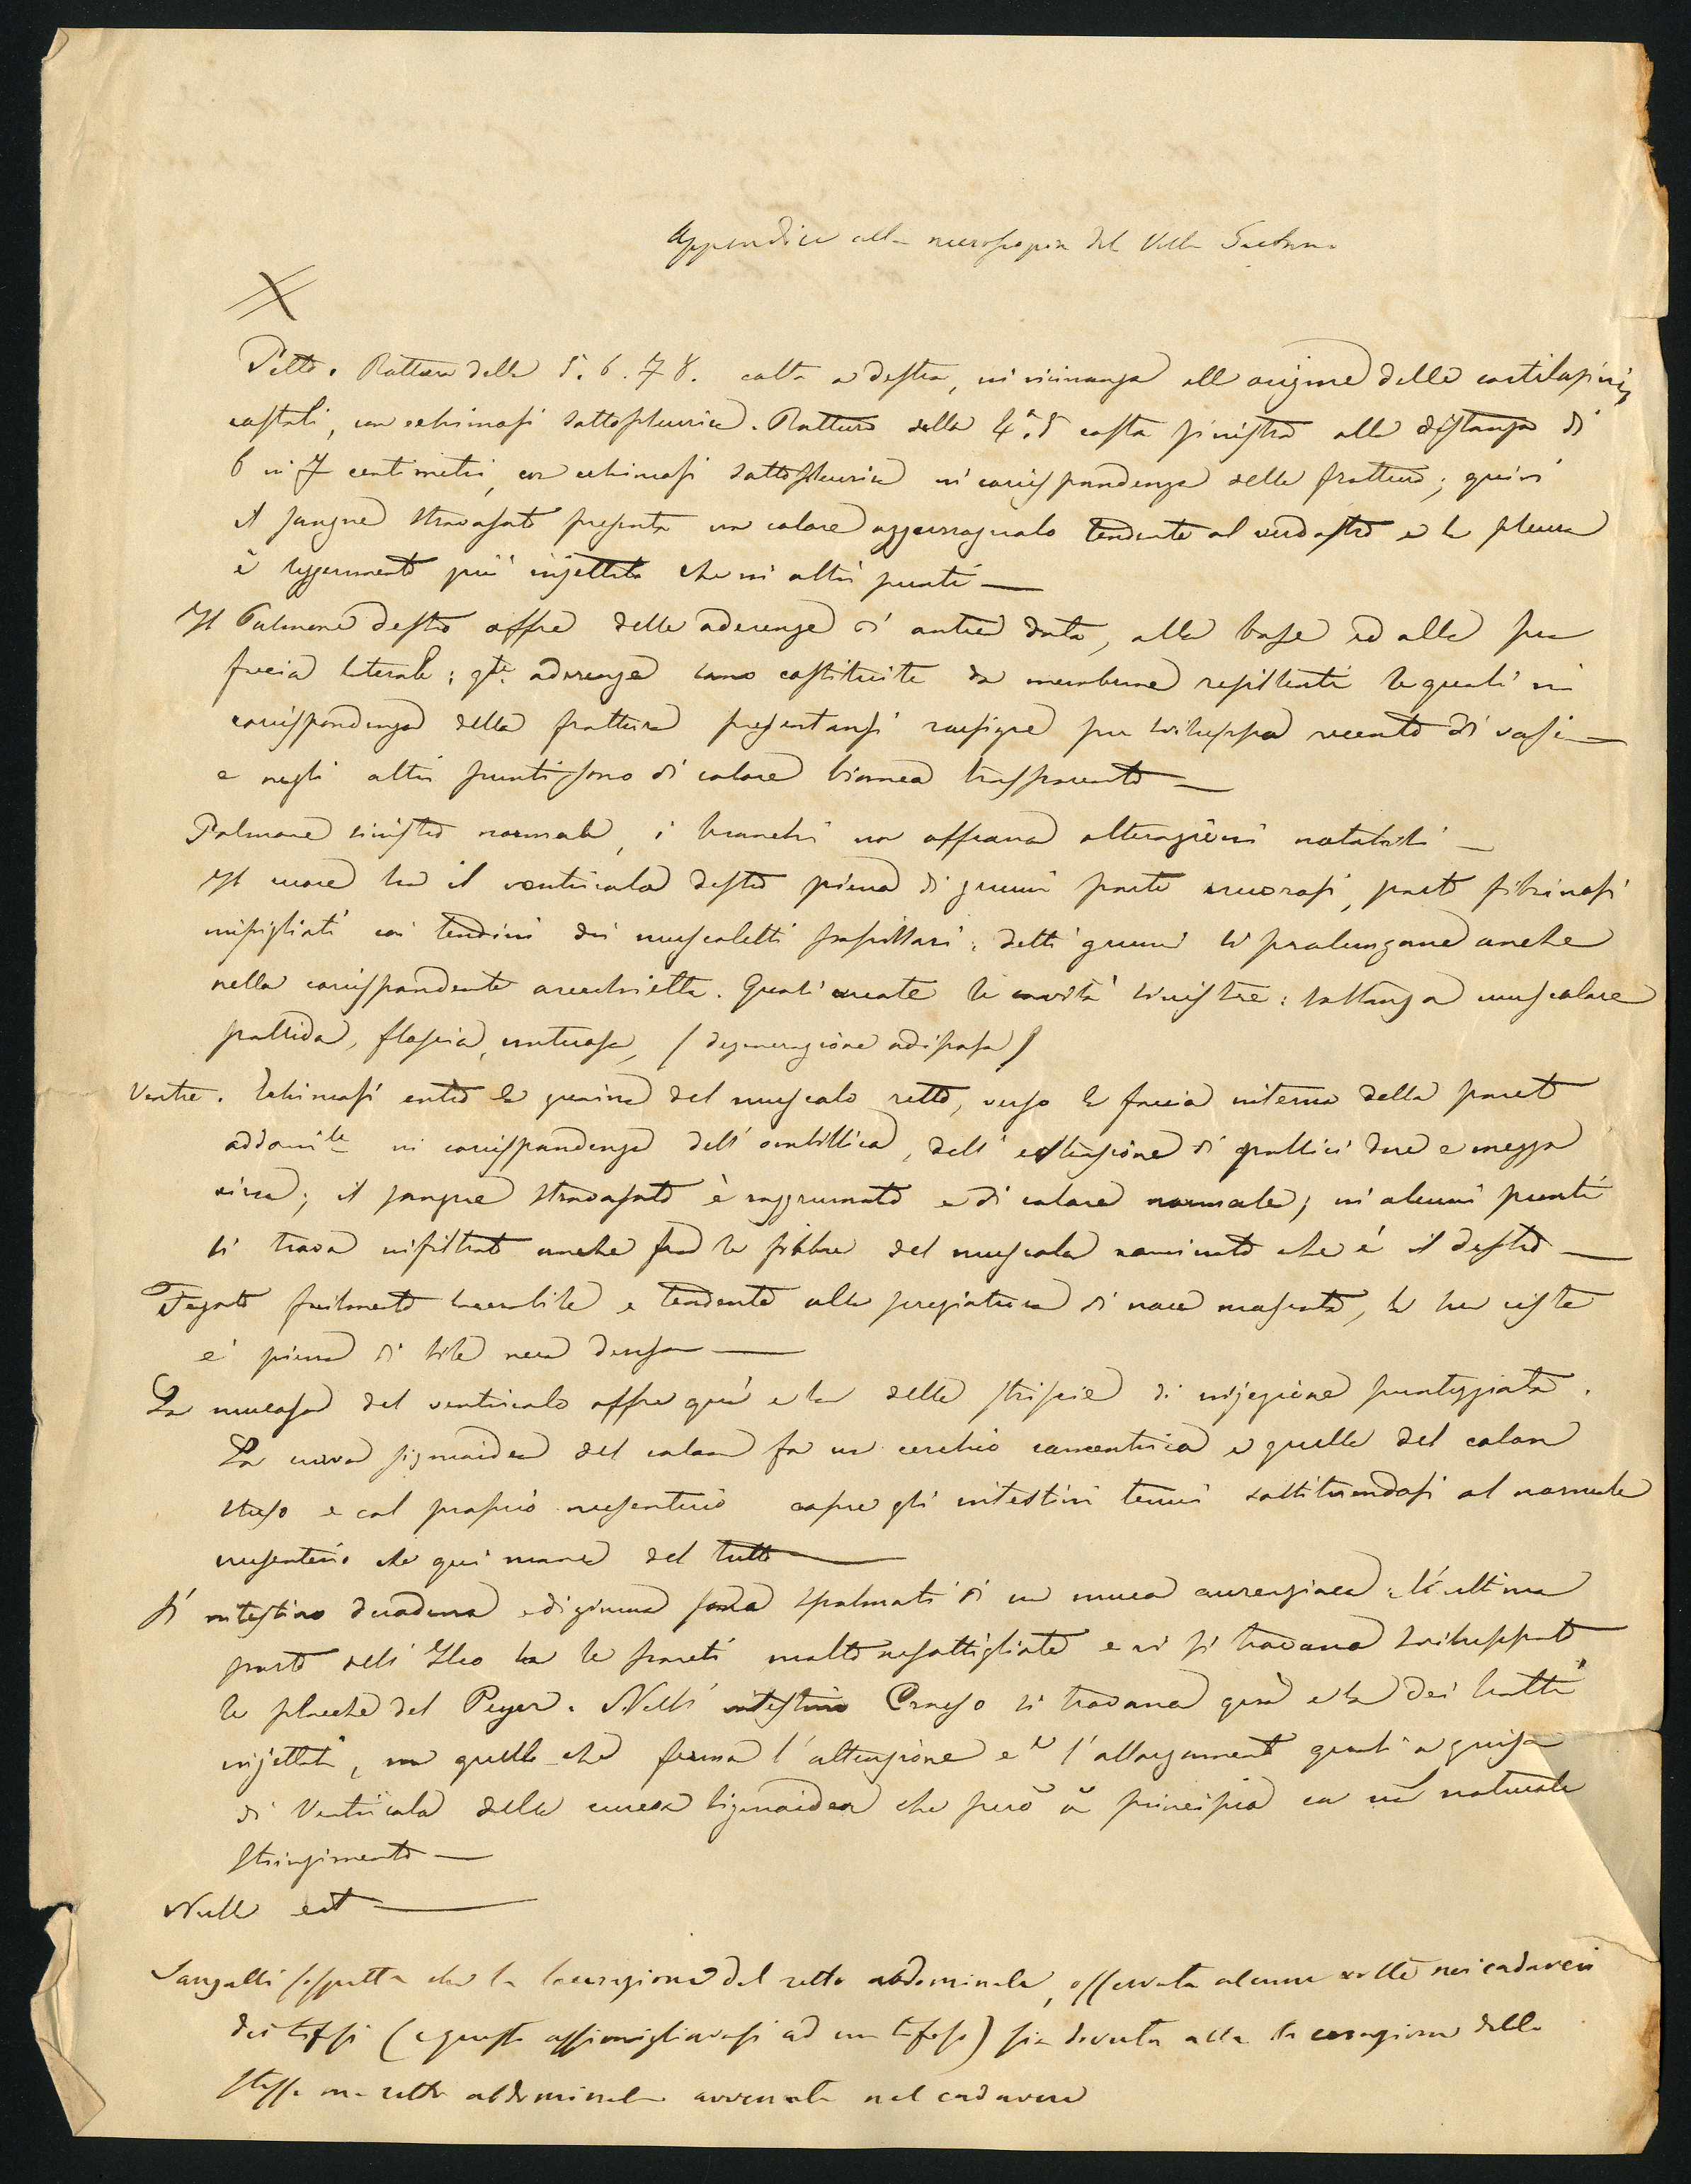 Appendice alla necroscopia del Villa
Petto. Rottura della 5. 6. 7 8. costa a destra, in vicinanza all origine delle cartilagini
costali, con echimosi sottopleurica. Rottura della 4.ª 5 costa sinistra alla distanza di
6 in 7 centimetri, con echimosi sottopleurica in corrispondenza della frattura; quivi
il sangue stravasato presenta un colore tendente al verdastro e la pleura
è leggermente più injettata che in altri punti —
Il Polmone destro offre delle aderenze di antica data, alla base ed alla sua
faccia laterale; qte. aderenze sono costituite da membrane resistenti le quali in
corrispondenza della frattura presentansi rossigne per sviluppo recente di vasi —
e negli altri punti sono di colore bianco trasparente —
Polmone sinistro normale, i bronchi non offrono alterazioni notabili —
Il cuore ha il ventricolo destro pieno di grumi parte cruorosi, parte fibrinosi
impigliati coi tendini dei muscoletti papillari; detti grumi si prolungano anche
nella corrispondente orecchietta. Quasi vuote le cavità sinistre: sostanza muscolare
pallida, floscia, untuosa, (degenerazione adiposa)
Ventre. Echimosi entro la guaina del muscolo retto, verso la faccia interna della parete
addomile in corrispondenza dell' ombillico, dell' estensione di pollici due e mezzo
circa; il sangue stravasato è raggrumato e di colore normale; in alcuni punti
si trova infiltrato anche fra le fibbre del muscolo nominato che è il destro —
Fegato facilmente lacerabile e tendente alla di noce moscata, la sua ciste
è piena di bile nera densa —
La mucosa del ventricolo offre quà e là delle striscie di injezione punteggiata.
La curva sigmoidea del colon fa un cerchio concentrico a quello del colon
steso e col proprio mesenterio copre gli intestini tenui sostituendosi al normale
mesenterio che qui manca del tutto —
Gl' intestino duodeno e digiuno sono spalmati di un muco aranciaco: l'ultima
parte dell' Ileo ha le pareti molto assottigliate e vi si trovano sviluppate
le placche del Peyer. Nell' intestino Crasso si trovano quà e là dei tratti
injettati, ma quello che ferma l'attenzione è l'allargamento quasi a guisa
di Ventricolo della curva sigmoidea che però à principio con un naturale
stringimento —
Null' est —
Sangalli sospetta che la lacerazione del retto abdominale, osservata alcune volte nei cadaveri
dei tifosi (e questo assomigliavasi ad un tifoso) sia dovuta alla lacerazione dello
stesso m. retto abdominale avvenuta nel cadavere